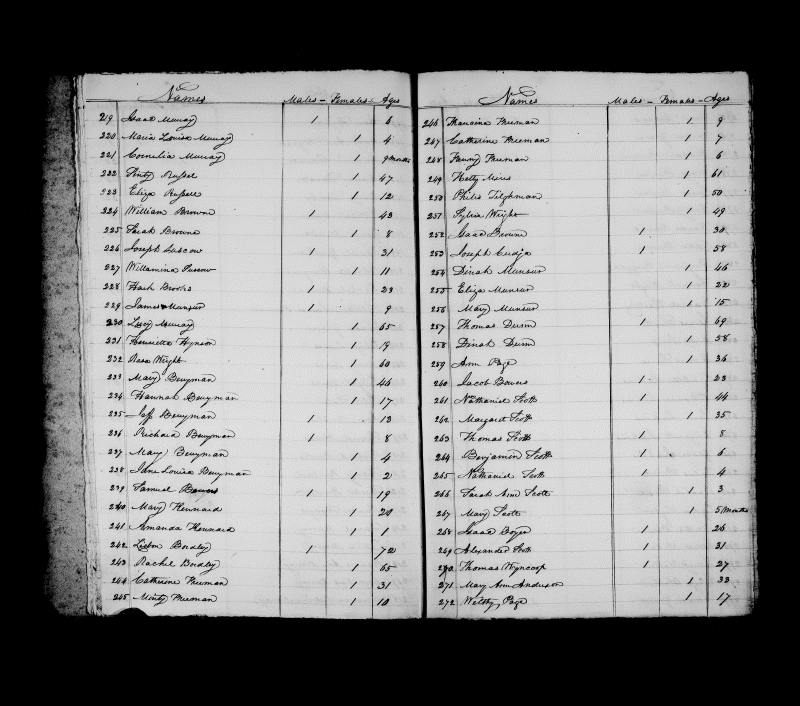 Names Males - Females - Ages
219 Isaac Murray 1 6
220 Maria Louisa Murray 1 4
221 Cornelia Murray 1 9 months
222 Russel 1 47
223 Eliza Russell 1 12
224 William Browne 1 43
225 Sarah Browne 1 8
226 Joseph 1 31
227 Willamina 1 11
228 Brookes 1 23
229 James Munsur 1 9
230 Lucy Murray 1 65
231 Henrietta Hynson 1 19
232 Rosa Wright 1 60
233 Mary Benyman 1 46
234 Hannah Benyman 1 17
235 Jeff Benyman 1 13
236 Richard Benyman 1 8
237 Mary Benyman 1 4
238 Jane Louisa Benyman 1 2
239 Samuel Bowers 1 19
240 Mary Hennard 1 20
241 Amanda Hennard 1 1
242 Bordley 1 72
243 Rachel Bordley 1 65
244 Catherine Freeman 1 31
245 Monty Freeman 1 10
Names Males - Females - Ages
246 Freeman 1 9
247 Catherine Freeman 1 7
248 Fanny Freeman 1 6
249 Hetty Mires 1 61
250 Philis Tilghman 1 50
251 Sylvia Wright 1 49
252 Isaac Browne 1 30
253 Joseph Cudjo 1 58
254 Dinah Munsur 1 46
255 Eliza Munsur 1 22
256 Mary Munsur 1 15
257 Thomas 1 69
258 Dinah 1 58
259 Ann Page 1 36
260 Jacob Bowers 1 23
261 Nathaniel Scott 1 44
262 Margaret Scott 1 35
263 Thomas Scott 1 8
264 Benjamin Scott 1 6
265 Nathaniel Scott 1 4
266 Sarah Ann Scott 1 3
267 Mary Scott 1 5 Months
268 Isaac Boyer 1 26
269 Alexander Scott 1 31
270 Thomas Wyncoop 1 27
271 Mary Ann Anderson 1 33
272 Page 1 17